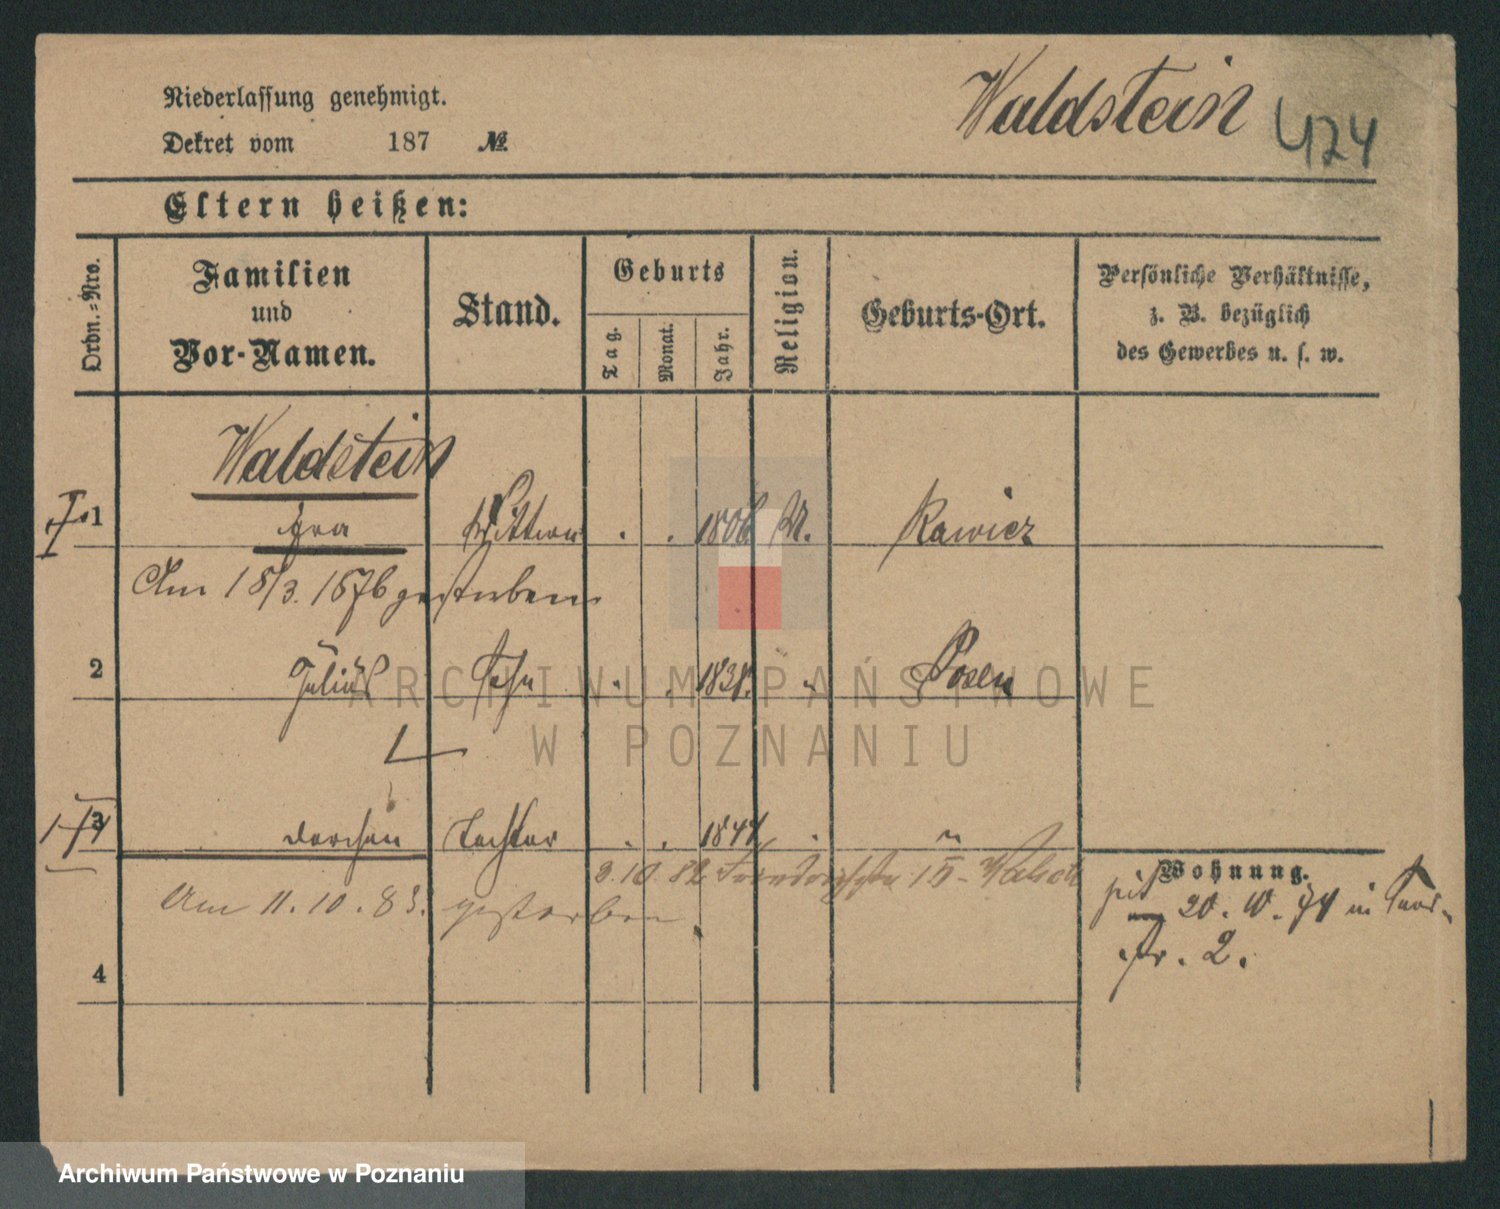 Niederlassung genehmigt.
Waldstein
424
Dekret vom 187 №
Eltern heißen:
Ordn.-Nro.
Familien
und
Vor-Namen.
Stand.
Geburts
Tag.
Monat.
Jahr.
Religion.
Geburts-Ort.
Persönliche Verhältnisse,
z. B. bezüglich
des Gewerbes u. s. w.
Waldstein
1 Wittwe . . 1806 M. Rawicz
Am 18/3. 1876 gestorben
2 Julius Sohn . . 1838. " Posen
3 Dorchen Tochter . . 1844 . "
3.10.82 15
Am 11.10.83. gestorben
Wohnung.
seit 20. 10. 74 in
str. 2.
4
ARCHIWUM PAŃSTWOWE
W POZNANIU
Archiwum Państwowe w Poznaniu